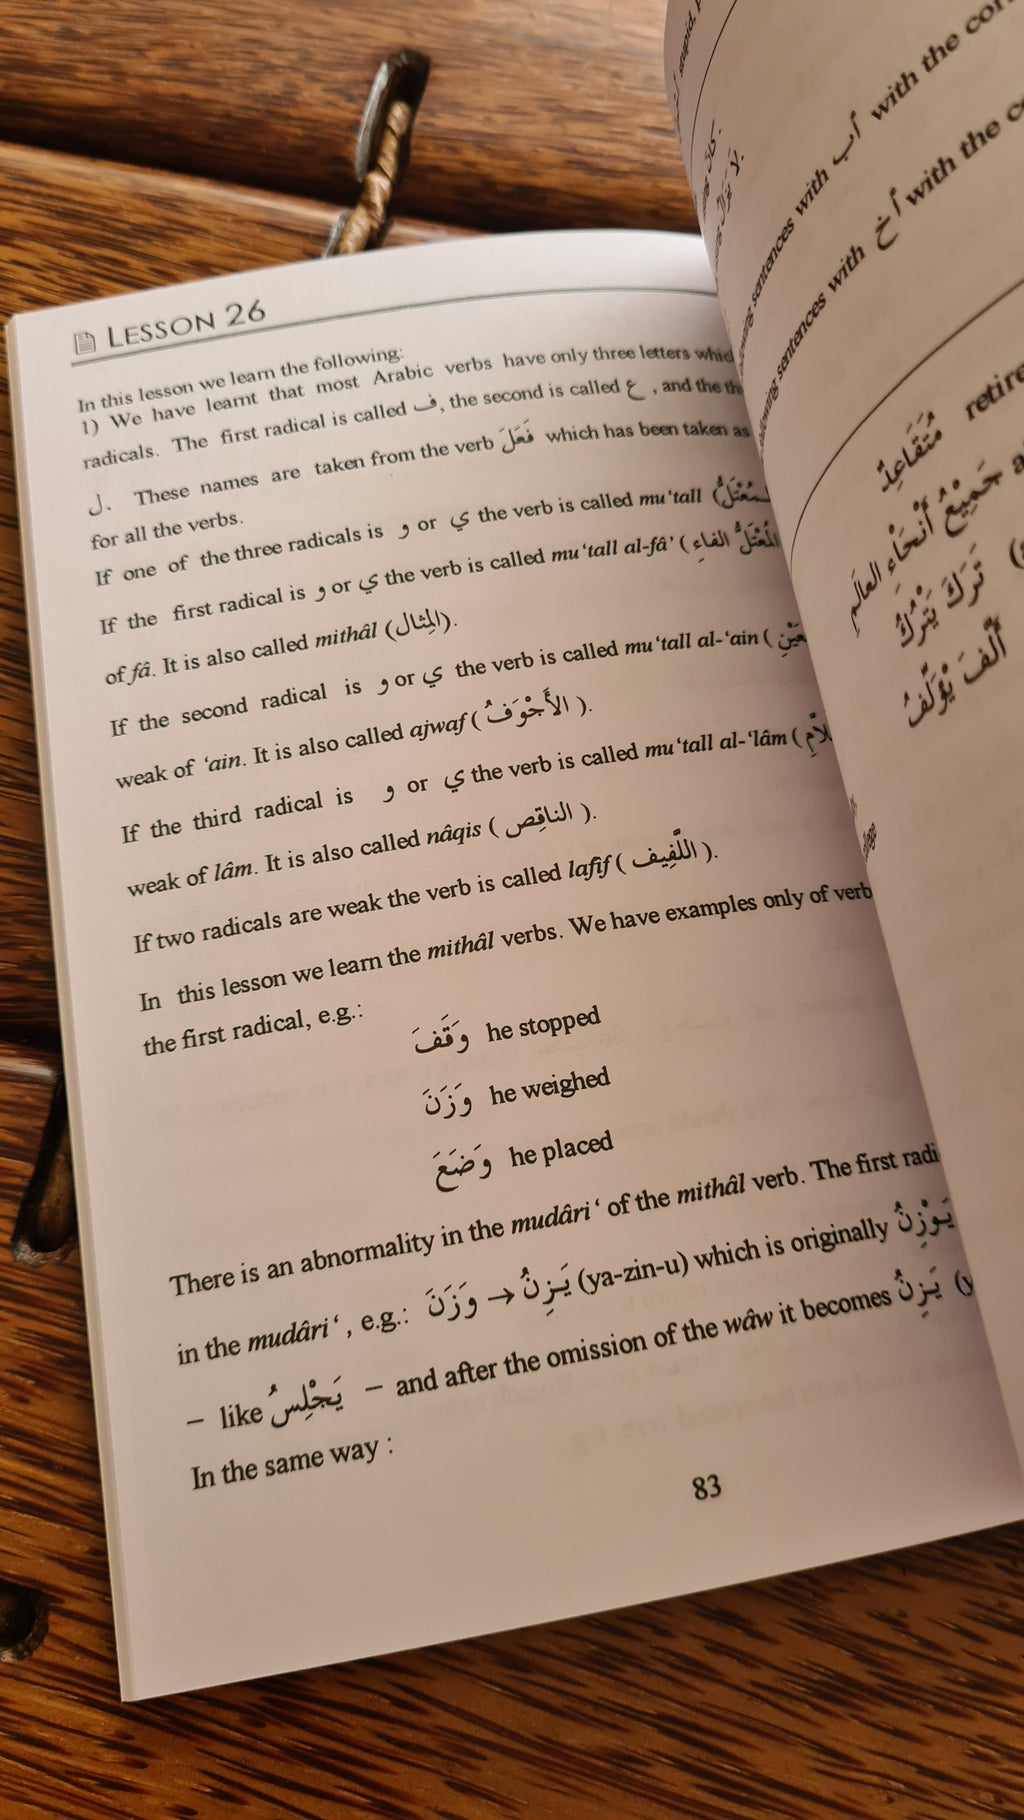 LESSON 26
In this lesson we learn the following:
1) We have learnt that most Arabic verbs have only three letters
radicals. The first radical is called ف, the second is called ع , and the
ل. These names are taken from the verb فَعَلَ which has been taken as
for all the verbs.
If one of the three radicals is و or ي the verb is called mu‘tall
If the first radical is و or ي the verb is called mu‘tall al-fâ’ (المُعْتَلُّ الفاءِ
of fâ. It is also called mithâl (المِثال).
If the second radical is و or ي the verb is called mu‘tall al-‘ain (
weak of ‘ain. It is also called ajwaf ( الأَجْوَفُ ).
If the third radical is و or ي the verb is called mu‘tall al-‘lâm (
weak of lâm. It is also called nâqis ( الناقِص ).
If two radicals are weak the verb is called lafîf ( اللَّفِيف ).
In this lesson we learn the mithâl verbs. We have examples only of verb
the first radical, e.g.:
وَقَفَ he stopped
وَزَنَ he weighed
وَضَعَ he placed
There is an abnormality in the mudâri‘ of the mithâl verb. The first
in the mudâri‘ , e.g.: وَزَنَ → يَـزِنُ (ya-zin-u) which is originally يَـوْزِنُ
– like يَجْلِسُ – and after the omission of the wâw it becomes يَـزِنُ
In the same way :
83
with أب with the
sentences with أخ with the
مُتَقَاعِدٌ
جَمِيْعُ أَنْحَاءِ العالَمِ
تَرَكَ يَتْرُكُ
أَلَّفَ يُؤَلِّفُ